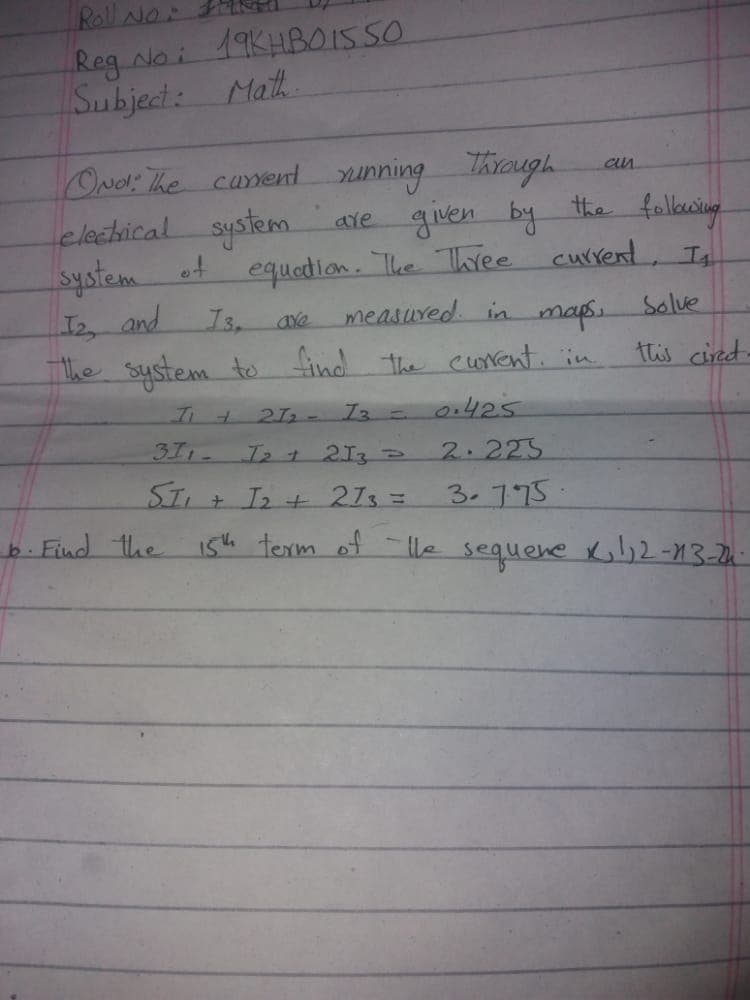 Roll No:
Reg No: 19KHB01550
Subject: Math.
QNo1: The current running Through an
electrical system are given by the following
system of equation. The Three current, I1
I2, and I3, are measured in maps, Solve
The system to find the current in this circt.
I1 + 2I2 - I3 = 0.425
3I1 - I2 + 2I3 = 2.225
5I1 + I2 + 2I3 = 3.775
b. Find the 15th term of the sequene x,1,2-x3-2x.